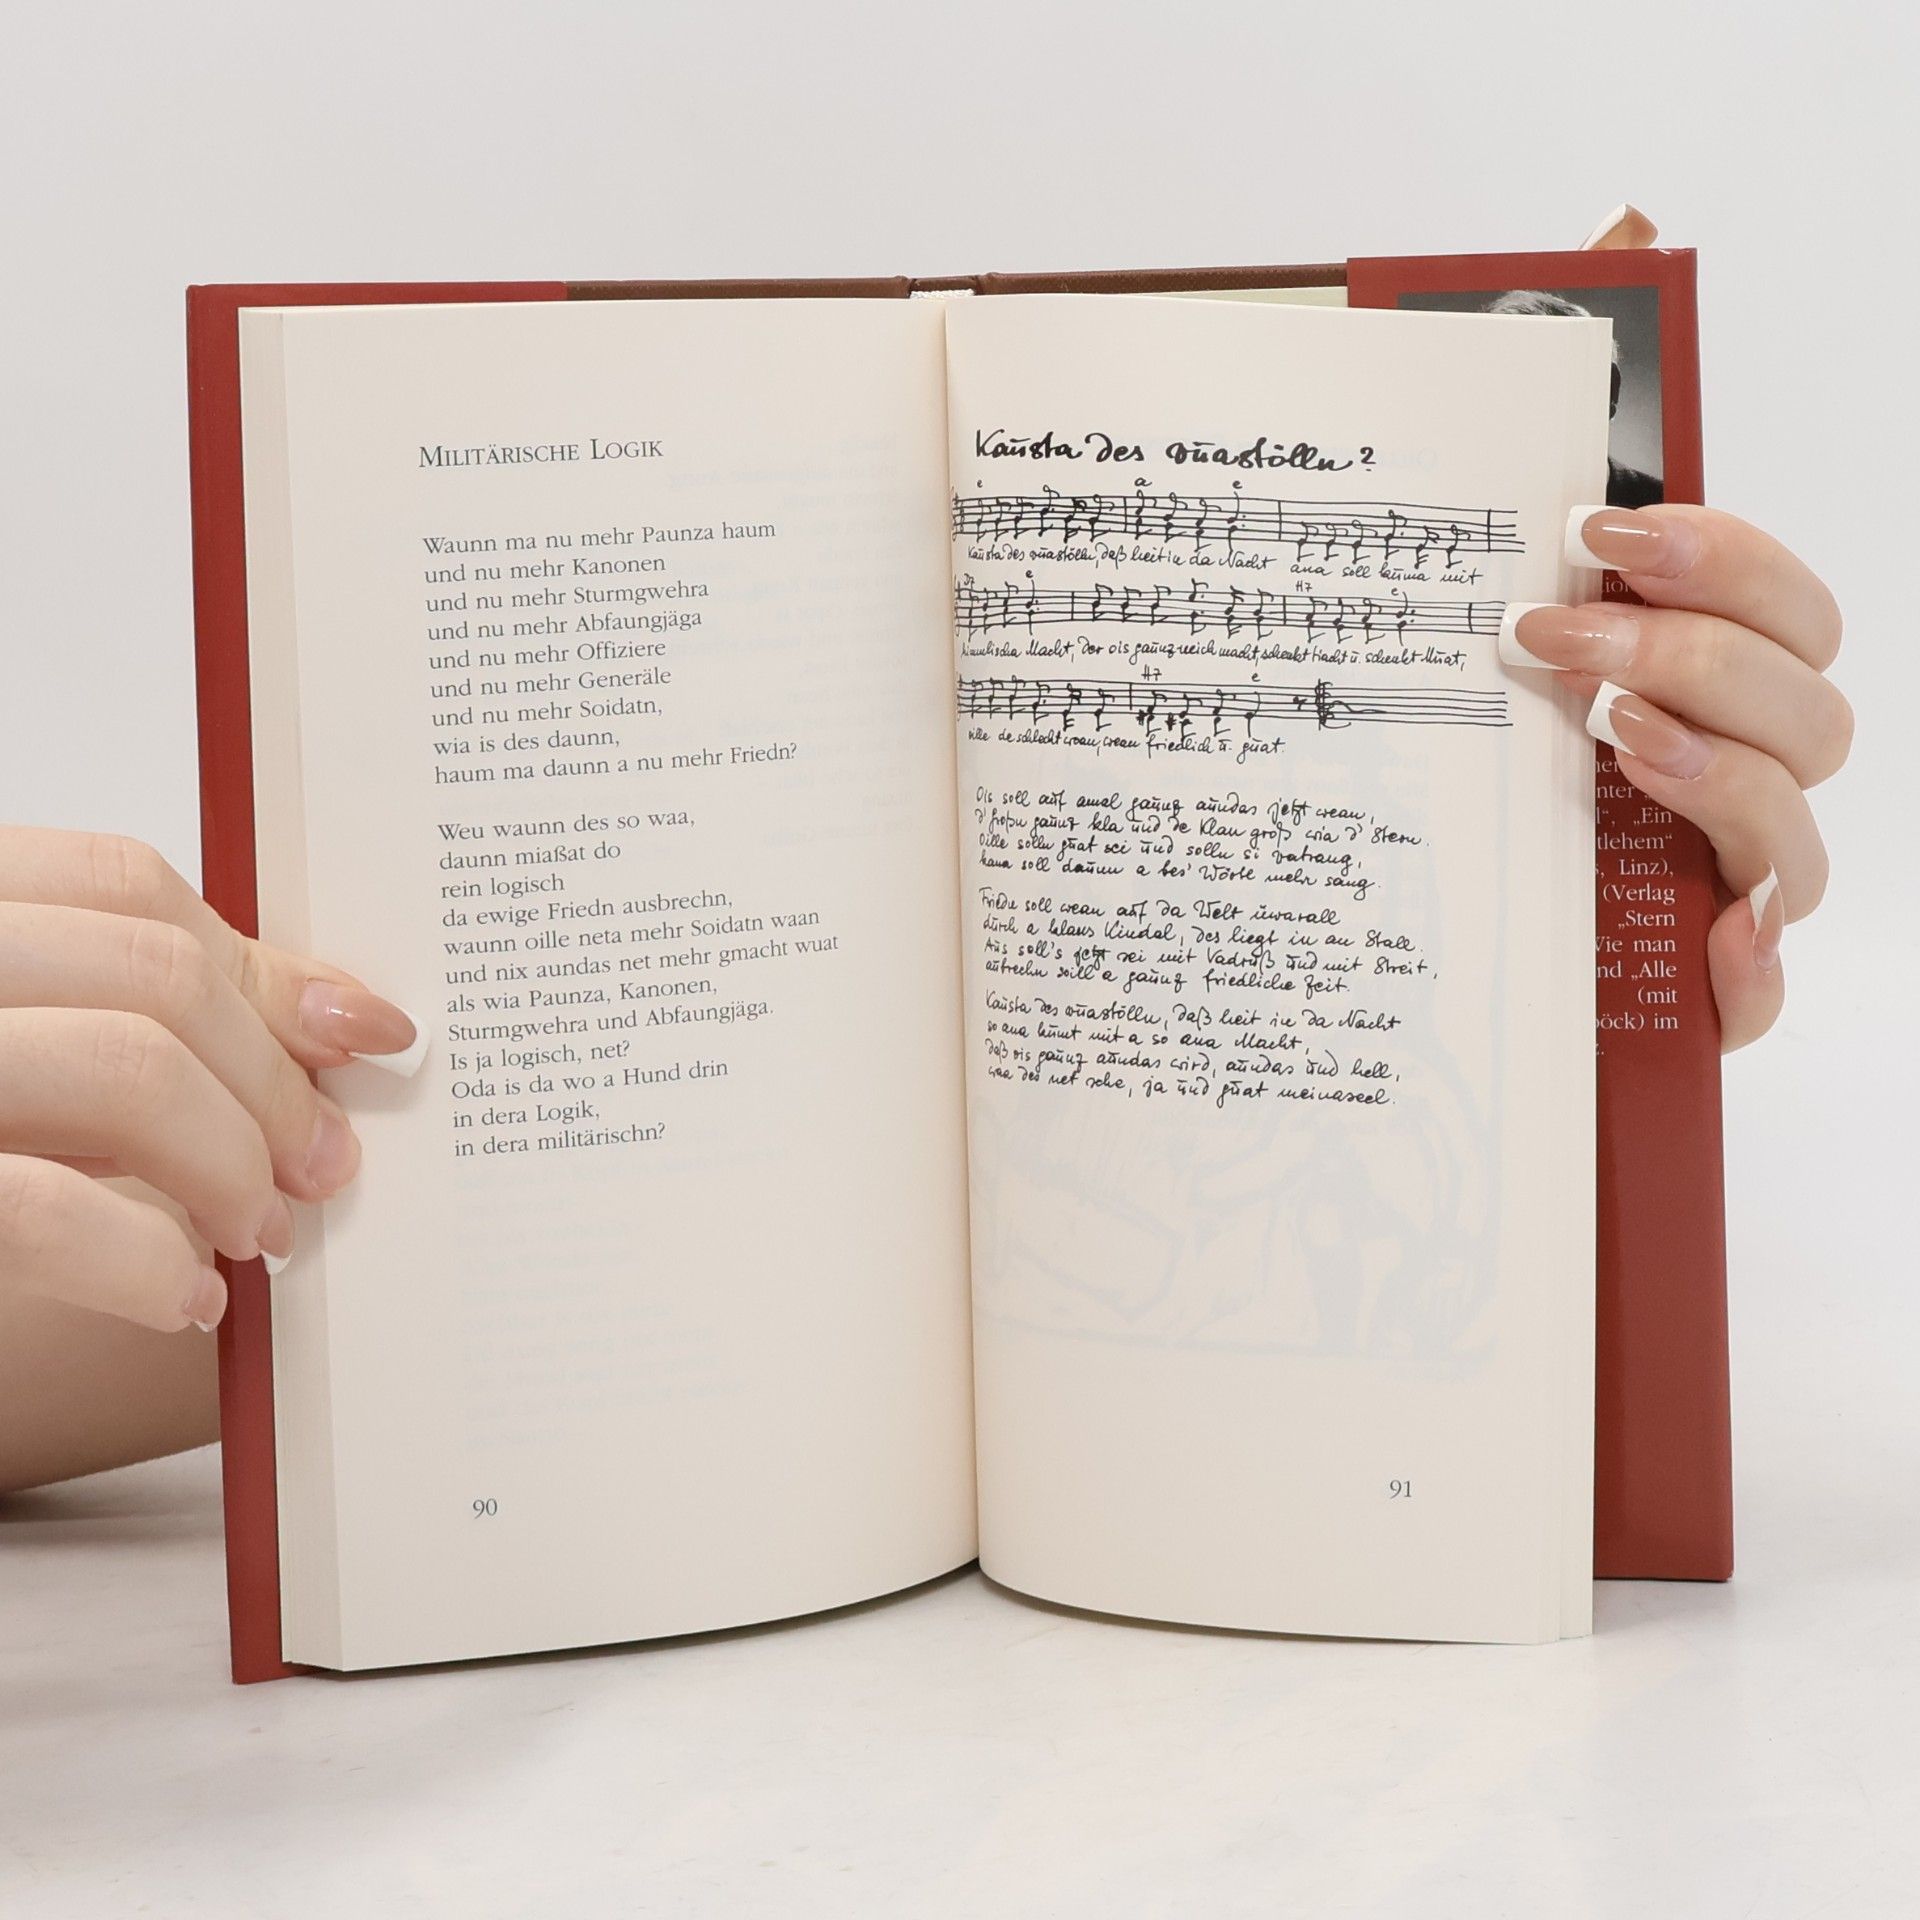 MILITÄRISCHE LOGIK
Waunn ma nu mehr Paunza haum
und nu mehr Kanonen
und nu mehr Sturmgwehra
und nu mehr Abfaungjäga
und nu mehr Offiziere
und nu mehr Generäle
und nu mehr Soidatn,
wia is des daunn,
haum ma daunn a nu mehr Friedn?
Weu waunn des so waa,
daunn miaßat do
rein logisch
da ewige Friedn ausbrechn,
waunn oille neta mehr Soidatn waan
und nix aundas net mehr gmacht wuat
als wia Paunza, Kanonen,
Sturmgwehra und Abfaungjäga.
Is ja logisch, net?
Oda is da wo a Hund drin
in dera Logik,
in dera militärischn?
90
Kaunsta des vuastölln?
e a e
Kaunsta des vuastölln, daß heit in da Nacht ana soll kumma mit
e H7 e
Macht, der ois gaunz neich macht, schenkt und schenkt Muat,
H7 e
oille de schlecht wean, wean friedlich u. guat.
Ois soll auf amal gaunz aundas jetzt wean,
d' Großn gaunz kla und de Klan groß wia d' Stern.
Oille solln guat sei und solln si vatrang,
kana soll daunn a bes' Wörtl mehr sang.
Friedn soll wean auf da Welt üwarall
durch a klans Kindal, des liegt in an Stall.
Aus soll's jetzt sei mit Vadruß und mit Streit,
aubrechn soill a gaunz friedliche Zeit.
Kaunsta des vuastölln, daß heit in da Nacht
so ana kummt mit a so ana Macht,
daß ois gaunz aundas wird, aundas und hell,
waa des net sche, ja und guat meinaseel.
91
nter
“, „Ein
tlehem“
, Linz),
(Verlag
„Stern
Wie man
nd „Alle
(mit
böck) im